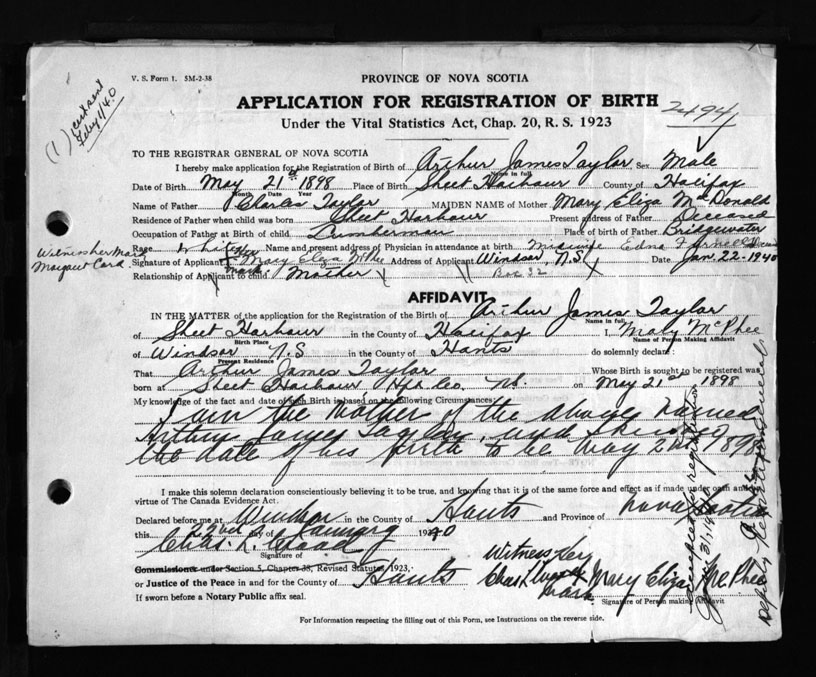 V. S. Form 1. 5M-2-38
PROVINCE OF NOVA SCOTIA
(1) cert sent Feby 1/40
APPLICATION FOR REGISTRATION OF BIRTH
2494
Under the Vital Statistics Act, Chap. 20, R. S. 1923
TO THE REGISTRAR GENERAL OF NOVA SCOTIA
I hereby make application for the Registration of Birth of Arthur James Taylor Sex Male
Name in full
Date of Birth May 21st 1898 Place of Birth Sheet Harbour County of Halifax
Month Date Year
Name of Father Charles Taylor MAIDEN NAME of Mother Mary Eliza McDonald
Residence of Father when child was born Sheet Harbour Present address of Father Deceased
Occupation of Father at Birth of child Lumberman Place of birth of Father Bridgewater
Race White Name and present address of Physician in attendance at birth midwife Edna
Witness her Mark
Margaret Card
Signature of Applicant Mary Eliza McPhee Address of Applicant Windsor, N.S. Date Jan. 22-1940
her X mark
Box 32
Relationship of Applicant to child Mother
AFFIDAVIT
IN THE MATTER of the application for the Registration of the Birth of Arthur James Taylor
Name in full
of Sheet Harbour in the County of Halifax I, Mary McPhee
Birth Place
Name of Person Making Affidavit
of Windsor N.S in the County of Hants do solemnly declare:
Present Residence
That Arthur James Taylor Whose Birth is sought to be registered was
born at Sheet Harbour Hfx Co. N.S. on May 21st 1898
My knowledge of the fact and date of such Birth is based on the following Circumstances:
I am the Mother of the above named
Arthur James Taylor, and
the date of his birth to be May 21st 1898
I make this solemn declaration conscientiously believing it to be true, and knowing that it is of the same force and effect as if made under oath and by
virtue of The Canada Evidence Act.
Declared before me at Windsor in the County of Hants and Province of Nova Scotia
this 22nd day of January 1940
Chas. R.
Signature of
Commissioner under Section 5, Chapter 38, Revised Statutes, 1923,
or Justice of the Peace in and for the County of Hants
If sworn before a Notary Public affix seal.
Witness her
X mark
Mary Eliza McPhee
Signature of Person making Affidavit
Accepted for registration
Deputy Registrar General
For Information respecting the filling out of this Form, see Instructions on the reverse side.